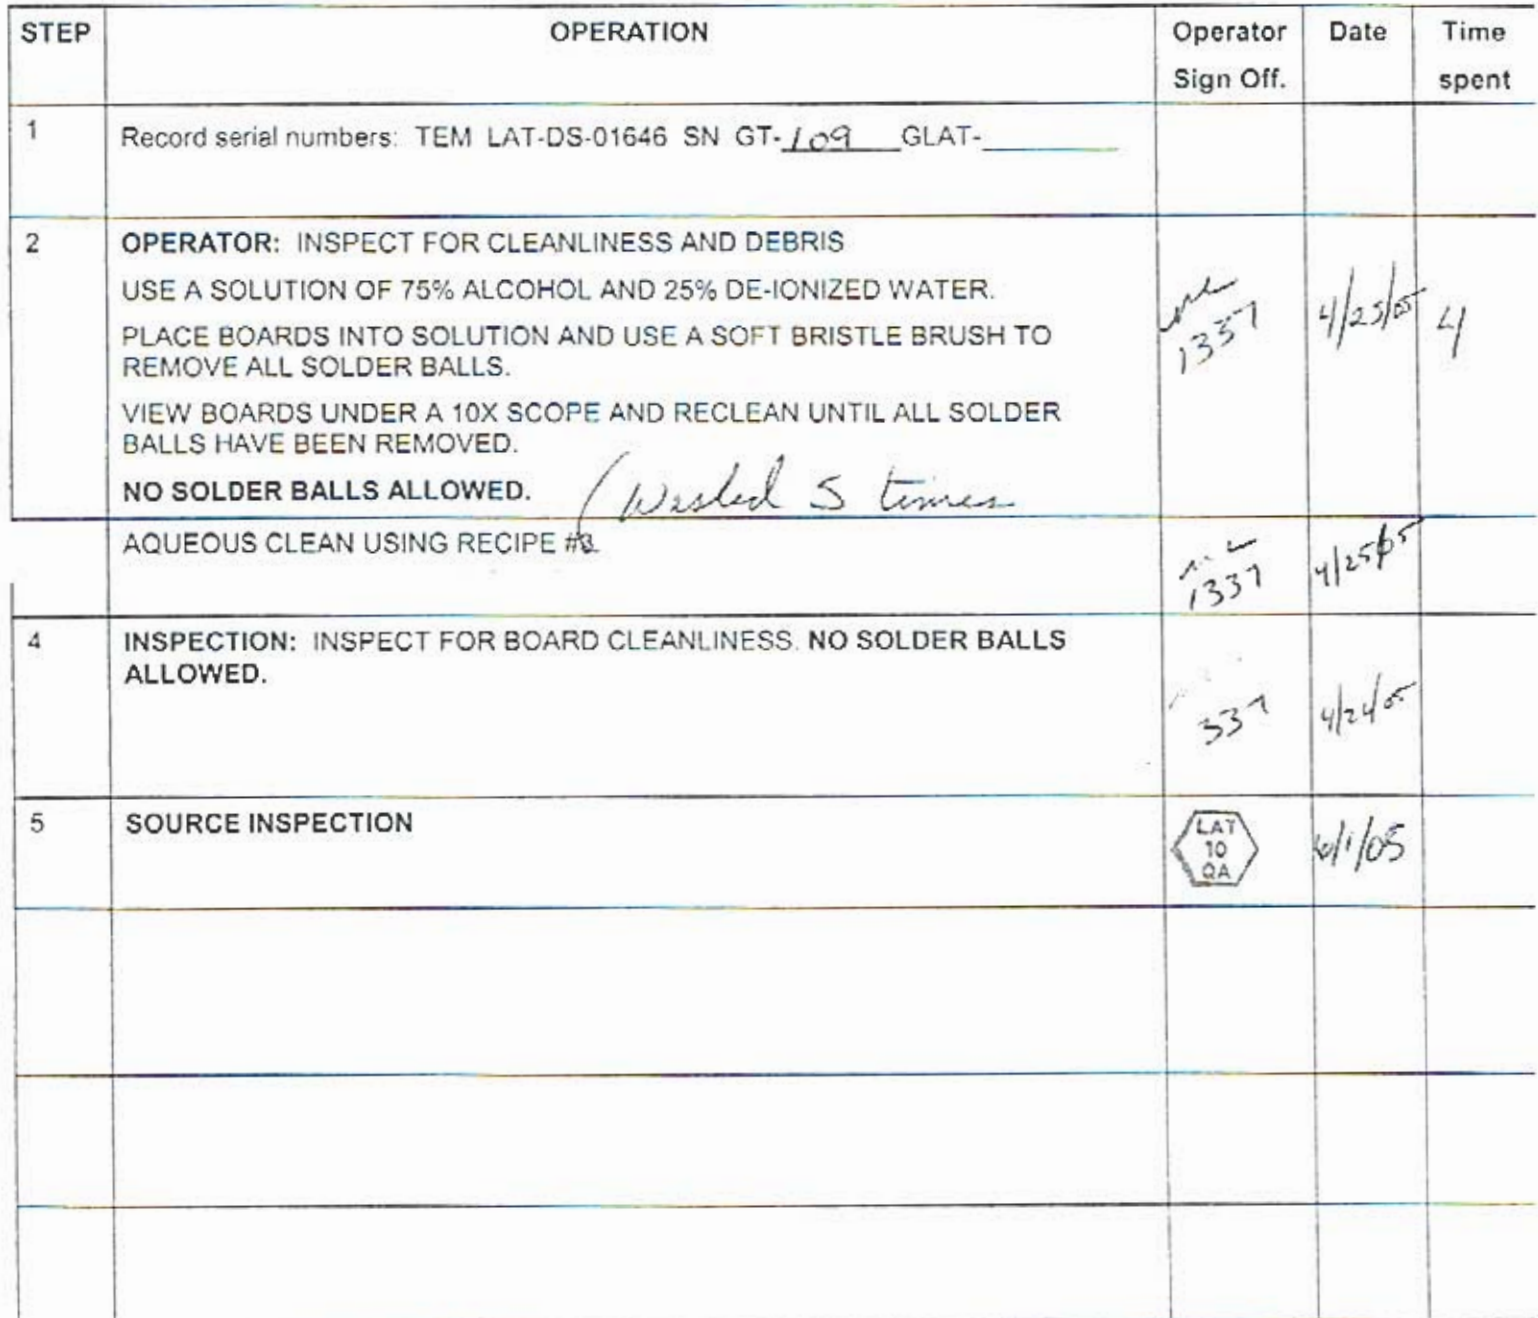 STEP OPERATION Operator Sign Off. Date Time spent
1 Record serial numbers: TEM LAT-DS-01646 SN GT-109 GLAT-
2 OPERATOR: INSPECT FOR CLEANLINESS AND DEBRIS
USE A SOLUTION OF 75% ALCOHOL AND 25% DE-IONIZED WATER.
PLACE BOARDS INTO SOLUTION AND USE A SOFT BRISTLE BRUSH TO
REMOVE ALL SOLDER BALLS.
1337 4/25/05 4
VIEW BOARDS UNDER A 10X SCOPE AND RECLEAN UNTIL ALL SOLDER
BALLS HAVE BEEN REMOVED.
NO SOLDER BALLS ALLOWED. 5 times
AQUEOUS CLEAN USING RECIPE
1337 4/25/05
4 INSPECTION: INSPECT FOR BOARD CLEANLINESS. NO SOLDER BALLS
ALLOWED.
337 4/24/05
5 SOURCE INSPECTION
LAT
10
QA
6/1/05